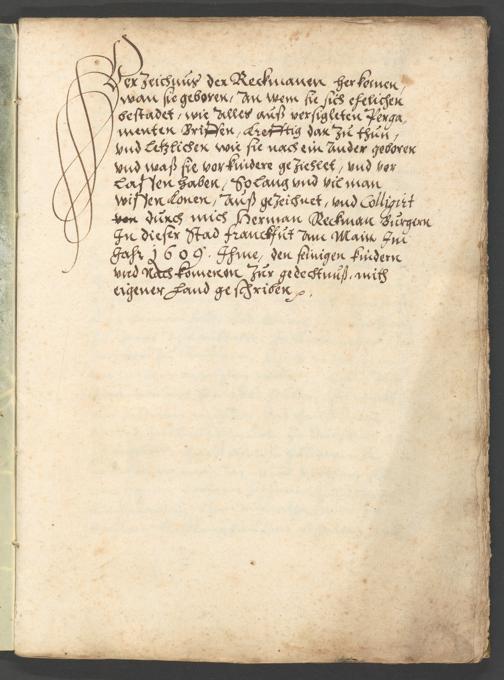 Verzeichnus der Reckmanen herkomen,
wan sie geboren, An wem sie sich ehelichen
bestadet, wie Alles auß versigleten Perga
menten Briffen, krefftig dar zu thun,
und letzlichen wie sie nach ein ander geboren
und waß sie vor kindere gezihlet, und ver
lassen haben, So lang und vil man
wissen konen, auß gezeichnet, und Colligirt
von durch mich Herman Reckman Burgern
In dieser Stad Franckfurt Am Main Im
Jahr 1609. Ihme, den seinigen kindern
und Nachkomenen zur gedechtnuß, mith
eigener Hand geschriben.